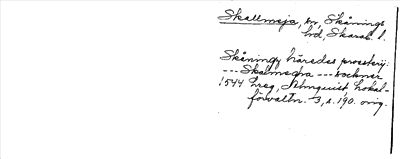 Skallmeja, sn, Skånings
hd, Skarab. l.
Skåningx häredes prosterij:
--- Skalmedra --- sockner
1544 hreg, Almquist, Lokal-
förvaltn. 3, s. 190. orig.